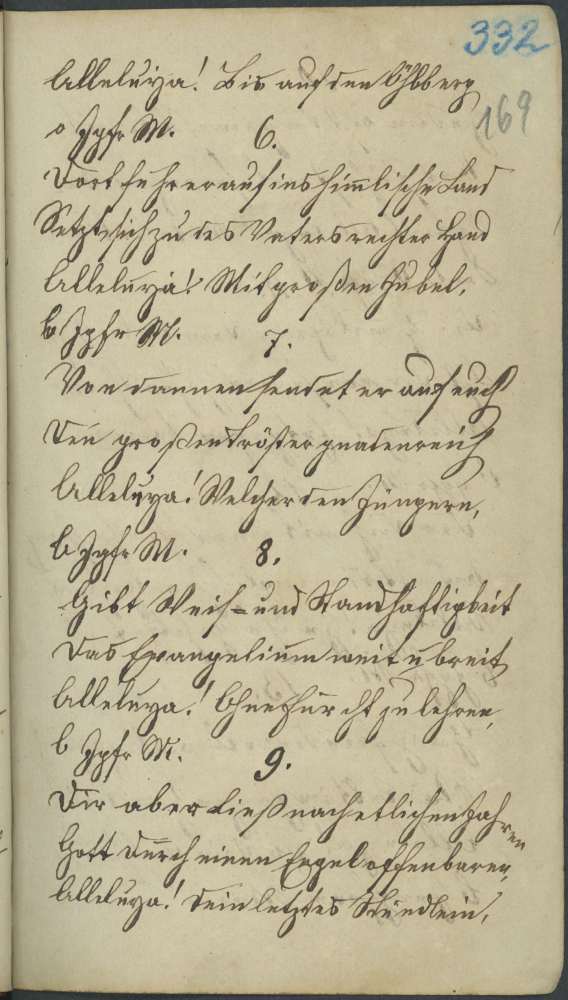 332
Alleluya! Bis auf den Öhlberg
169
o Jgfr M.
6.
Dort fuhr er auf ins himlische Land
Setzt sich zu des Vaters rechter Hand
Alleluya! Mit großen Jubel.
o Jgfr M.
7.
Von dannen sendet er auf euch
Den großen Tröster gnadenreich
Alleluya! Welcher den Jüngern,
o Jgfr M.
8.
Gibt Weis- und Standhaftigkeit
Das Evangelium weit u breit
Alleluya! Ohne Furcht zu lehren,
o Jgfr M.
9.
Dir aber ließ nach etlichen Jahren
Gott durch einen Engel offenbaren,
Alleluya! Dein letztes Stündlein,